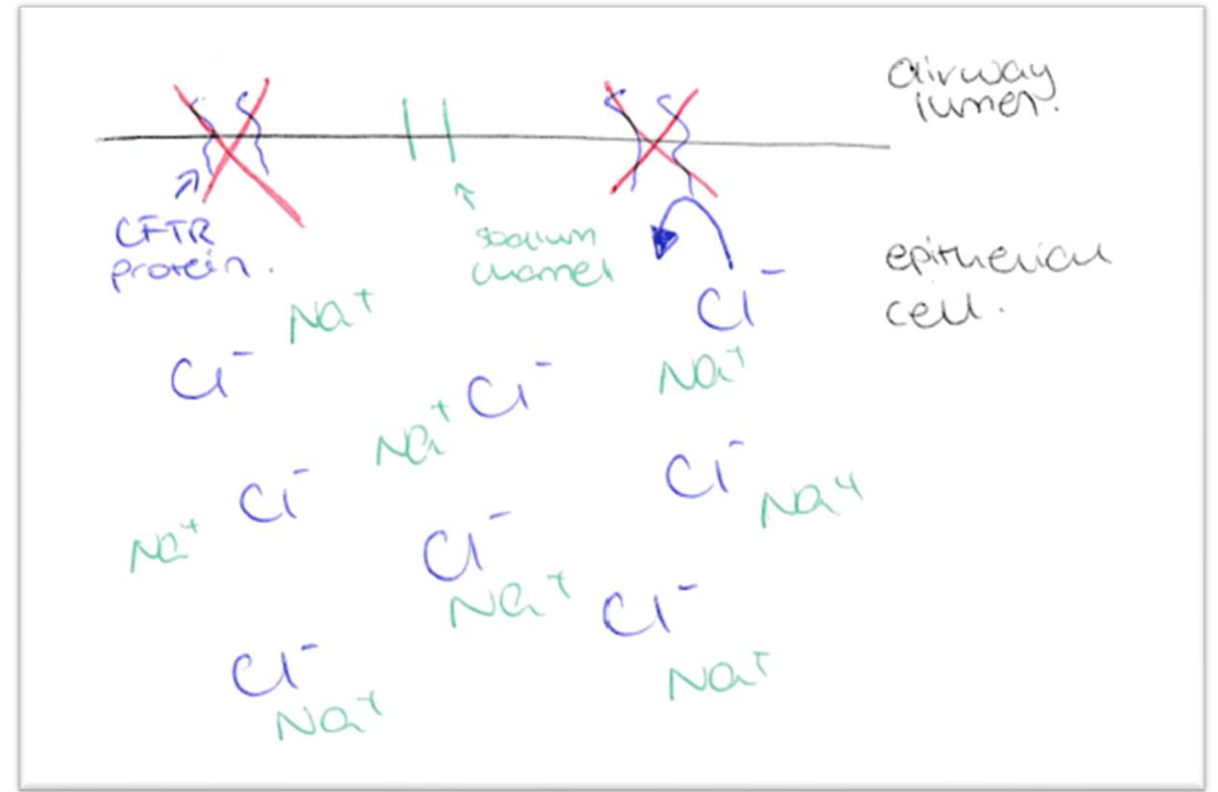 airway
lumen.
CFTR
protein.
sodium
channel
epithelial
cell.
Na⁺
Cl⁻
Cl⁻
Na⁺
Cl⁻
Na⁺
Cl⁻
Cl⁻
Na⁺
Na⁺
Cl⁻
Na⁺
Cl⁻
Cl⁻
Na⁺
Na⁺